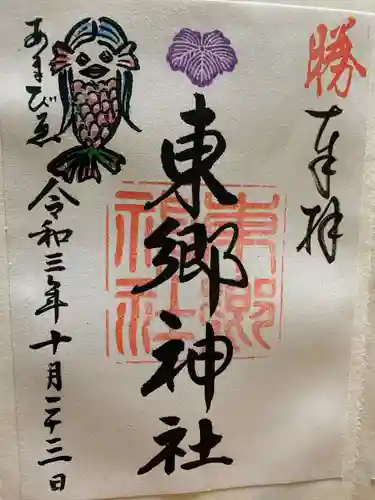 勝
奉拝
東郷神社
東郷
神社
令和三年十月二十三日
あまびゑ